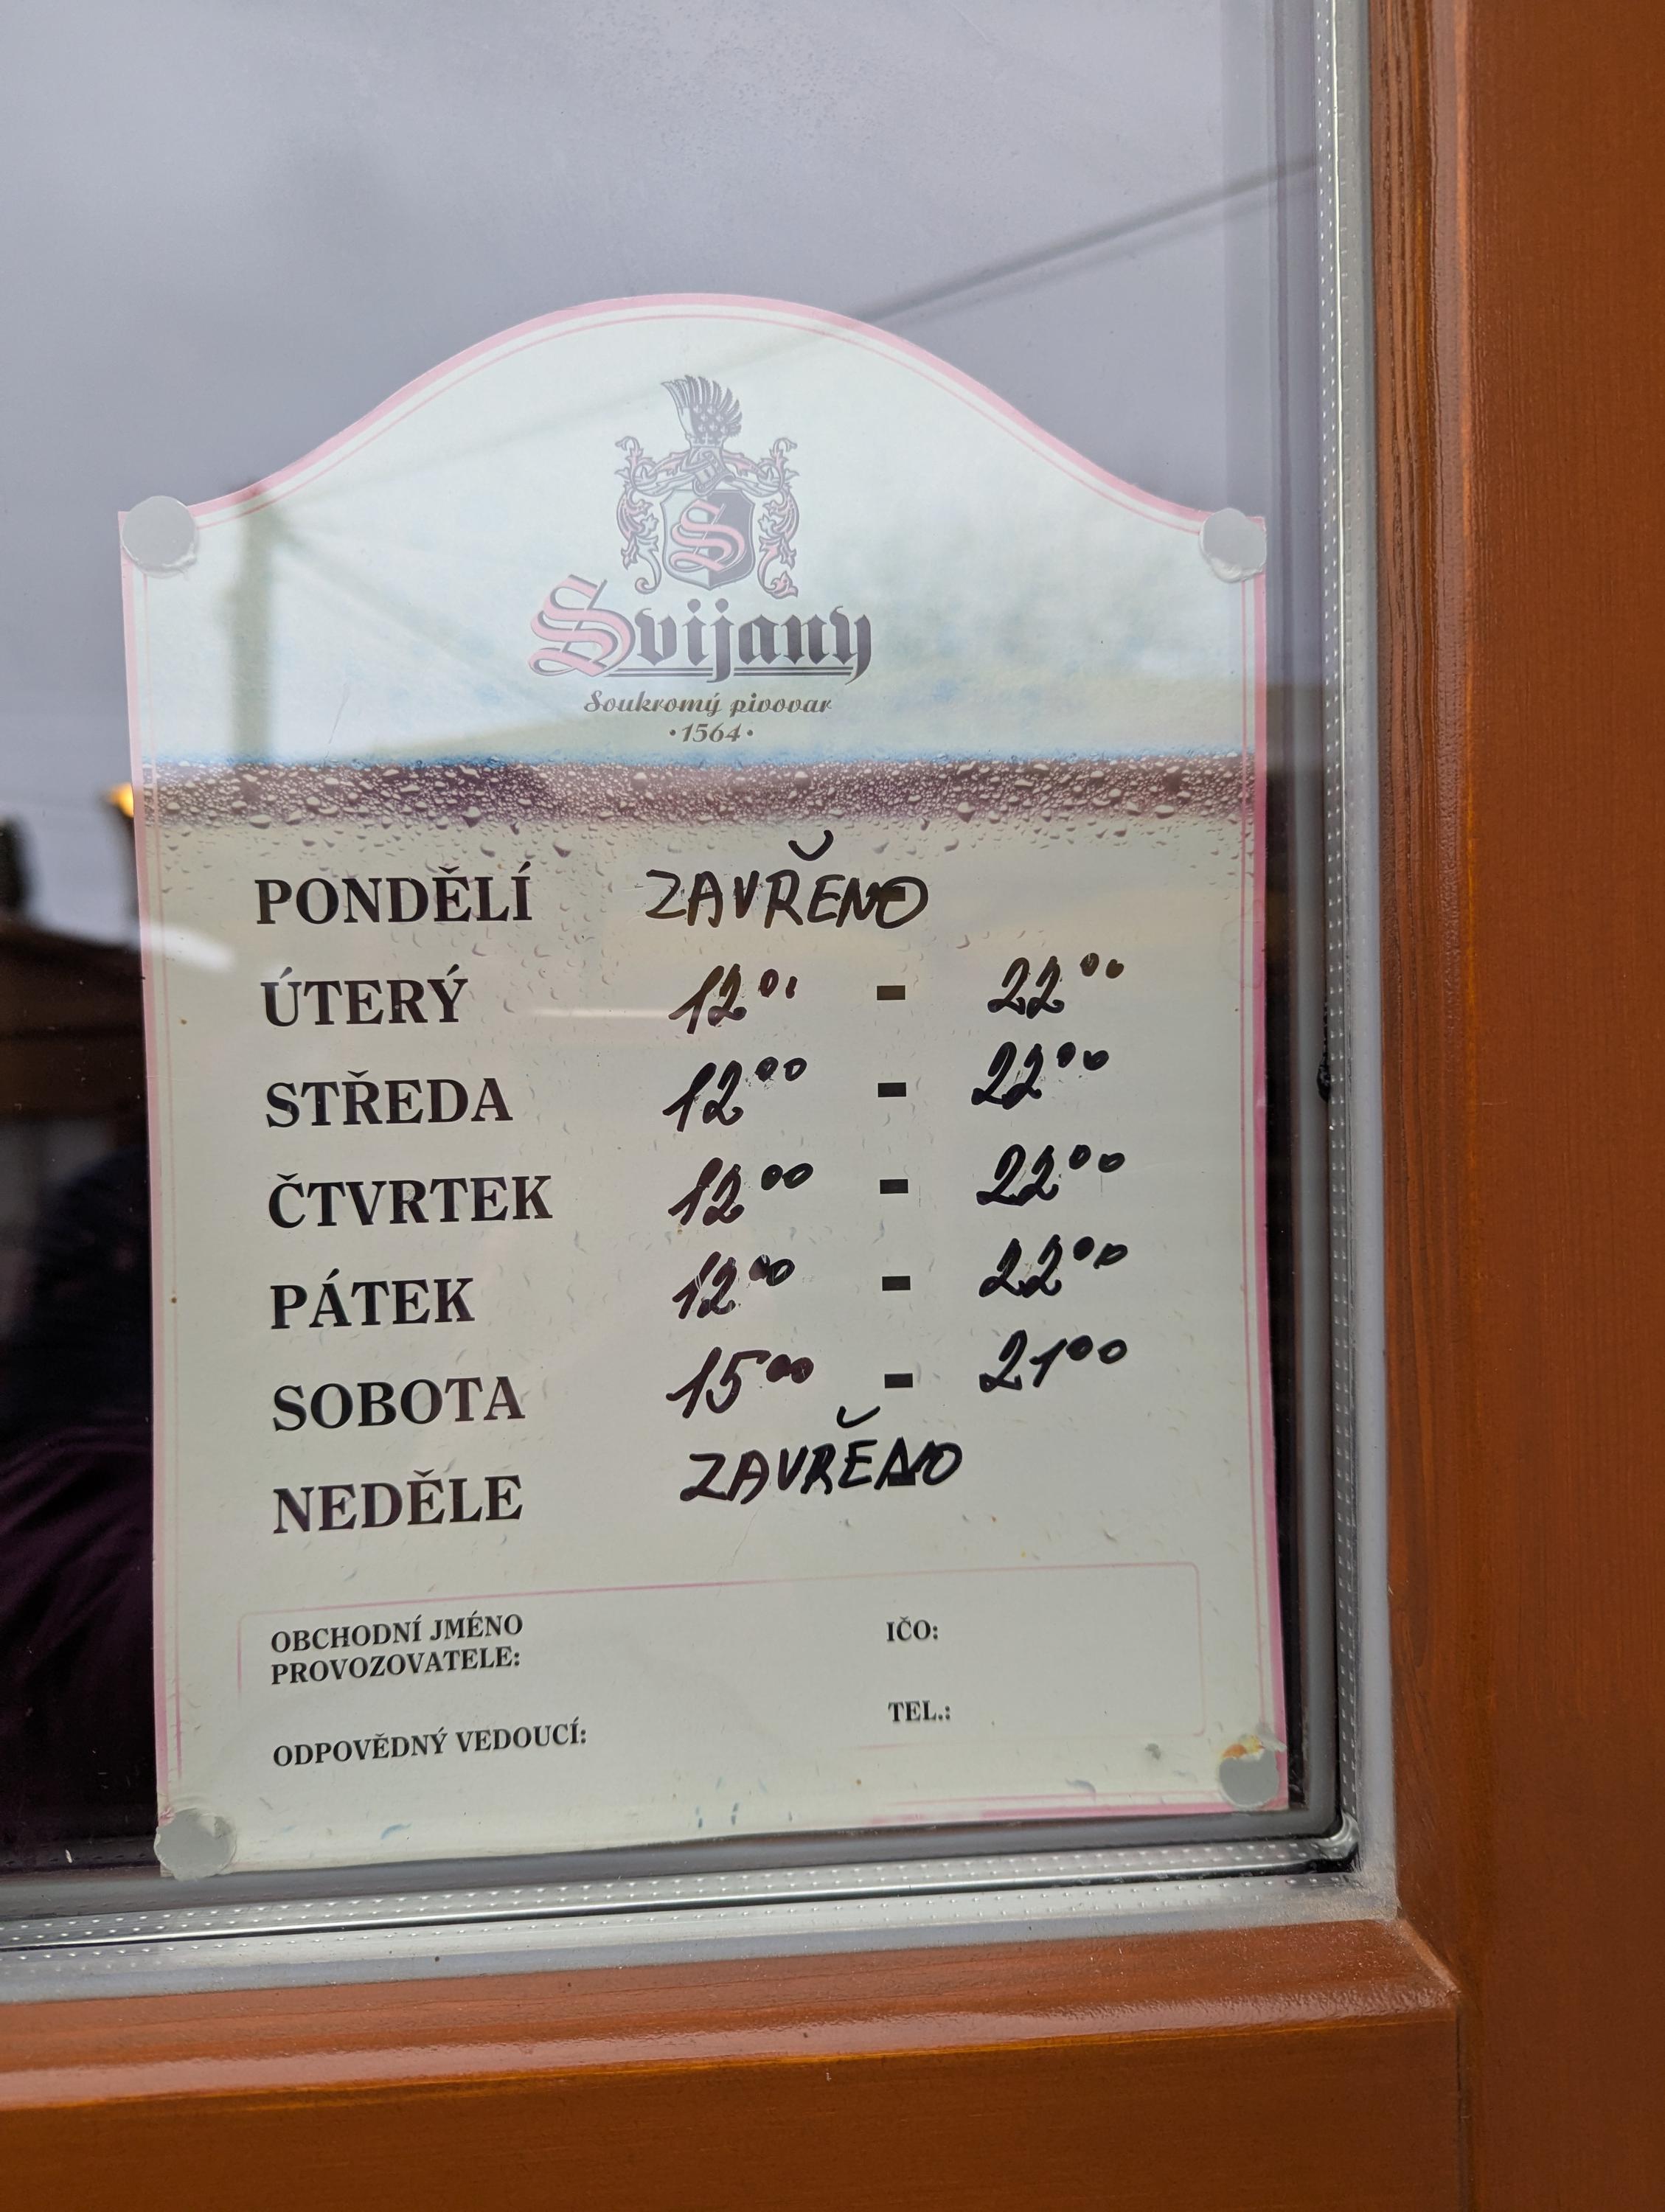 S
Svijany
Soukromý pivovar
•1564•
PONDĚLÍ ZAVŘENO
ÚTERÝ 12⁰⁰ - 22⁰⁰
STŘEDA 12⁰⁰ - 22⁰⁰
ČTVRTEK 12⁰⁰ - 22⁰⁰
PÁTEK 12⁰⁰ - 22⁰⁰
SOBOTA 15⁰⁰ - 21⁰⁰
NEDĚLE ZAVŘENO
OBCHODNÍ JMÉNO IČO:
PROVOZOVATELE:
ODPOVĚDNÝ VEDOUCÍ: TEL.: